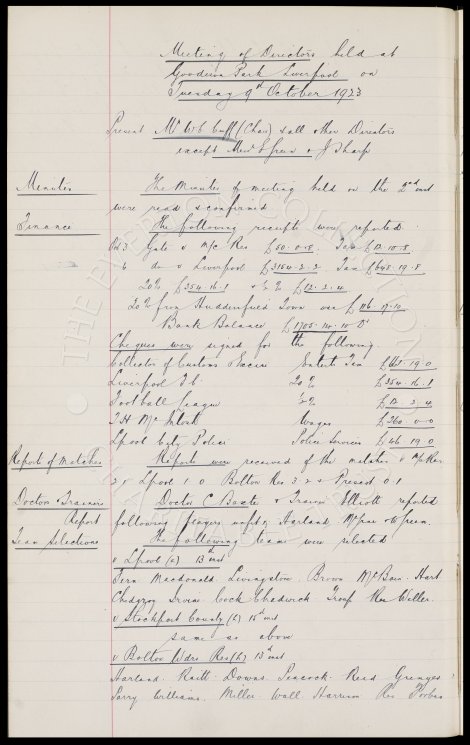 Meeting of Directors held at
Goodison Park Liverpool on
Tuesday 9th October 1923
Present Mr W C Cuff (Chair) & all other Directors
except Messrs E Green & J Sharp
Minutes The Minutes of meeting held on the 2nd inst
were read & confirmed
Finance The following receipts were reported.
Oct 3 Gate v M/C Res £50.0.8. Tax £12.10.8
6 do v Liverpool £3154.2.2 Tax £648.19.8
20% £354.16.1 & % £12.2.4
20% from Huddersfield Town was £116.17.10
Bank Balance £1705.14.10 Dr
Cheques were signed for the following
Collector of Customs & Excise Entert Tax 19.0
Liverpool F.C. 20% £354.16.1
Football League % £12.2.4
T H McIntosh Wages £260.0.0
Lpool City Police Police Services £46.19.0
Report of Matches Reports were received of the matches v M/c Res
2.1 Lpool 1.0 Bolton Res 3.2 & Prescot 0.1
Doctor & Trainers Report
Doctor C Baxter & Trainer Elliott reported
following players unfit, Harland,
Team Selections The following team were selected
v Lpool (a) 13th inst
Fern Macdonald Livingstone. Brown McBain. Hart
Chedgzoy Irvine Cock Chadwick Troup Res Weller.
v Stockport County (L)
same as above
v Bolton Wdrs Res (h) 13th inst
Harland. Raitt. Downs. Peacock. Reid Grenyer
Parry Williams. Miller Wall Harrison Res Forbes
THE EVERTON COLLECTION